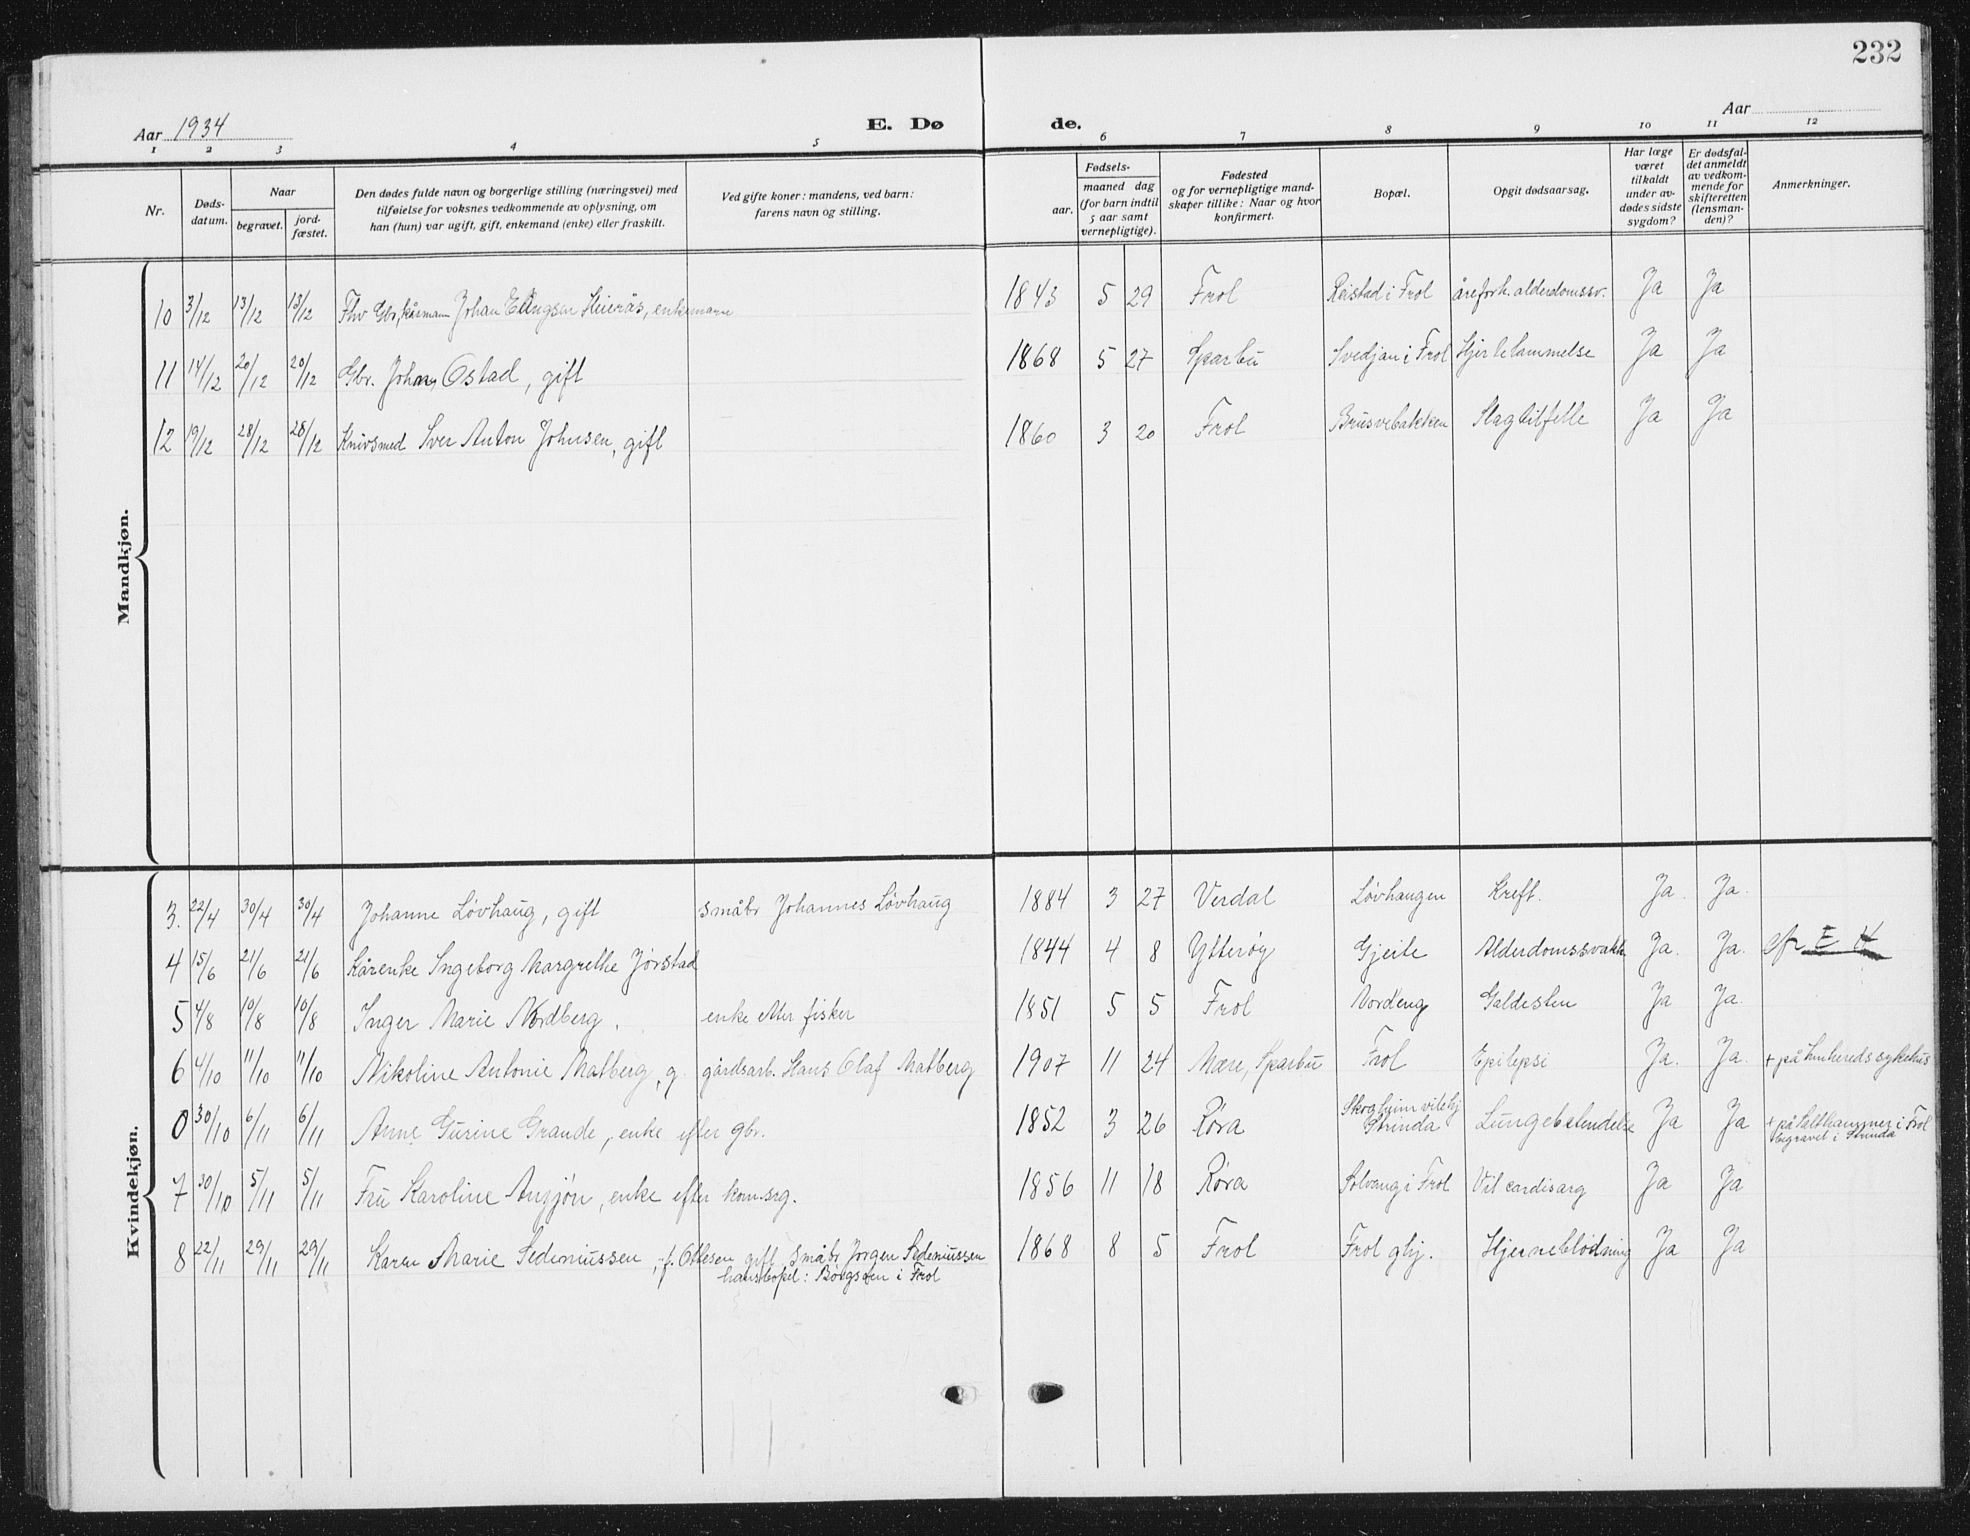 232
Aar 1934
E. Dø
de.
Aar
1 2 3 4 5 6 7 8 9 10 11 12
Nr.
Døds-
datum.
Naar
begravet.
jord-
fæstet.
Den dødes fulde navn og borgerlige stilling (næringsvei) med
tilføielse for voksnes vedkommende av oplysning, om
han (hun) var ugift, gift, enkemand (enke) eller fraskilt.
Ved gifte koner: mandens, ved barn:
farens navn og stilling.
Fødsels-
aar.
maaned dag
(for barn indtil
5 aar samt
vernepligtige).
Fødested
og for vernepligtige mand-
skaper tillike: Naar og hvor
konfirmert.
Bopæl.
Opgit dødsaarsag.
Har læge
været
tilkaldt
under av-
dødes sidste
sygdom?
Er dødsfal-
det anmeldt
av vedkom-
mende for
skifteretten
(lensman-
den)?
Anmerkninger.
Mandkjøn.
10 3/12 13/12 13/12 Fhv Gbr, kårmann Johan Ellingsen Heierås, enkemann 1843 5 29 Frol Reistad i Frol åreforh. alderdomssv. Ja Ja
11 14/12 20/12 20/12 Gbr. Johan Ostad, gift 1868 5 27 Sparbu Svedjan i Frol Hjertelammelse Ja Ja
12 19/12 28/12 28/12 Knivsmed Sver Anton Johnsen, gift 1860 3 20 Frol Brusvebakken Slagtilfelle Ja Ja
Kvindekjøn.
3. 22/4 30/4 30/4 Johanne Løvhaug, gift småbr Johannes Løvhaug 1884 3 27 Verdal Løvhaugen Kreft. Ja. Ja.
4 15/6 21/6 21/6 Kårenke Ingeborg Margrethe Jørstad 1844 4 8 Ytterøy Gjeite Alderdomssvakh. Ja. Ja.
5 4/8 10/8 10/8 Inger Marie Nordberg. enke etter fisker 1851 5 5 Frol Nordeng Galdesten Ja Ja.
6 4/10 11/10 11/10 Nikoline Antonie Matberg, g. gårdsarb. Hans Olaf Matberg 1907 11 24 Mære, Sparbu Frol Epilepsi Ja. Ja. + på Innhereds sykehus
0 30/10 6/11 6/11 Anne Gurine Grande, enke efter gbr. 1852 3 26 Røra Skogheim vilehj Strinda Lungebetendelse Ja Ja + på Salthammer i Frol
begravet i Strinda
7 30/10 5/11 5/11 Fru Karoline Anzjøn, enke efter kom.srg. 1856 11 18 Røra Solvang i Frol Vit cardisarg Ja Ja
8 22/11 29/11 29/11 Karen Marie Sedeniussen, f. Ottesen gift småbr Jørgen Sedeniussen 1868 8 5 Frol Frol ghj. Hjerneblødning Ja Ja
hans bopel: Borgsøen i Frol